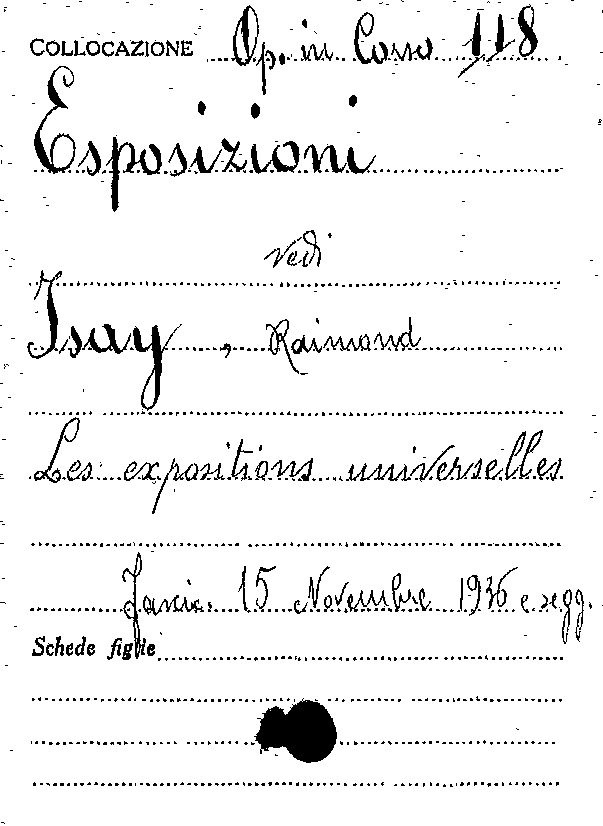 COLLOCAZIONE Op. in Corso 118
Esposizioni
vedi
Isay, Raimond
Les expositions universelles
Fascic. 15 Novembre 1936 e segg.
Schede figlie